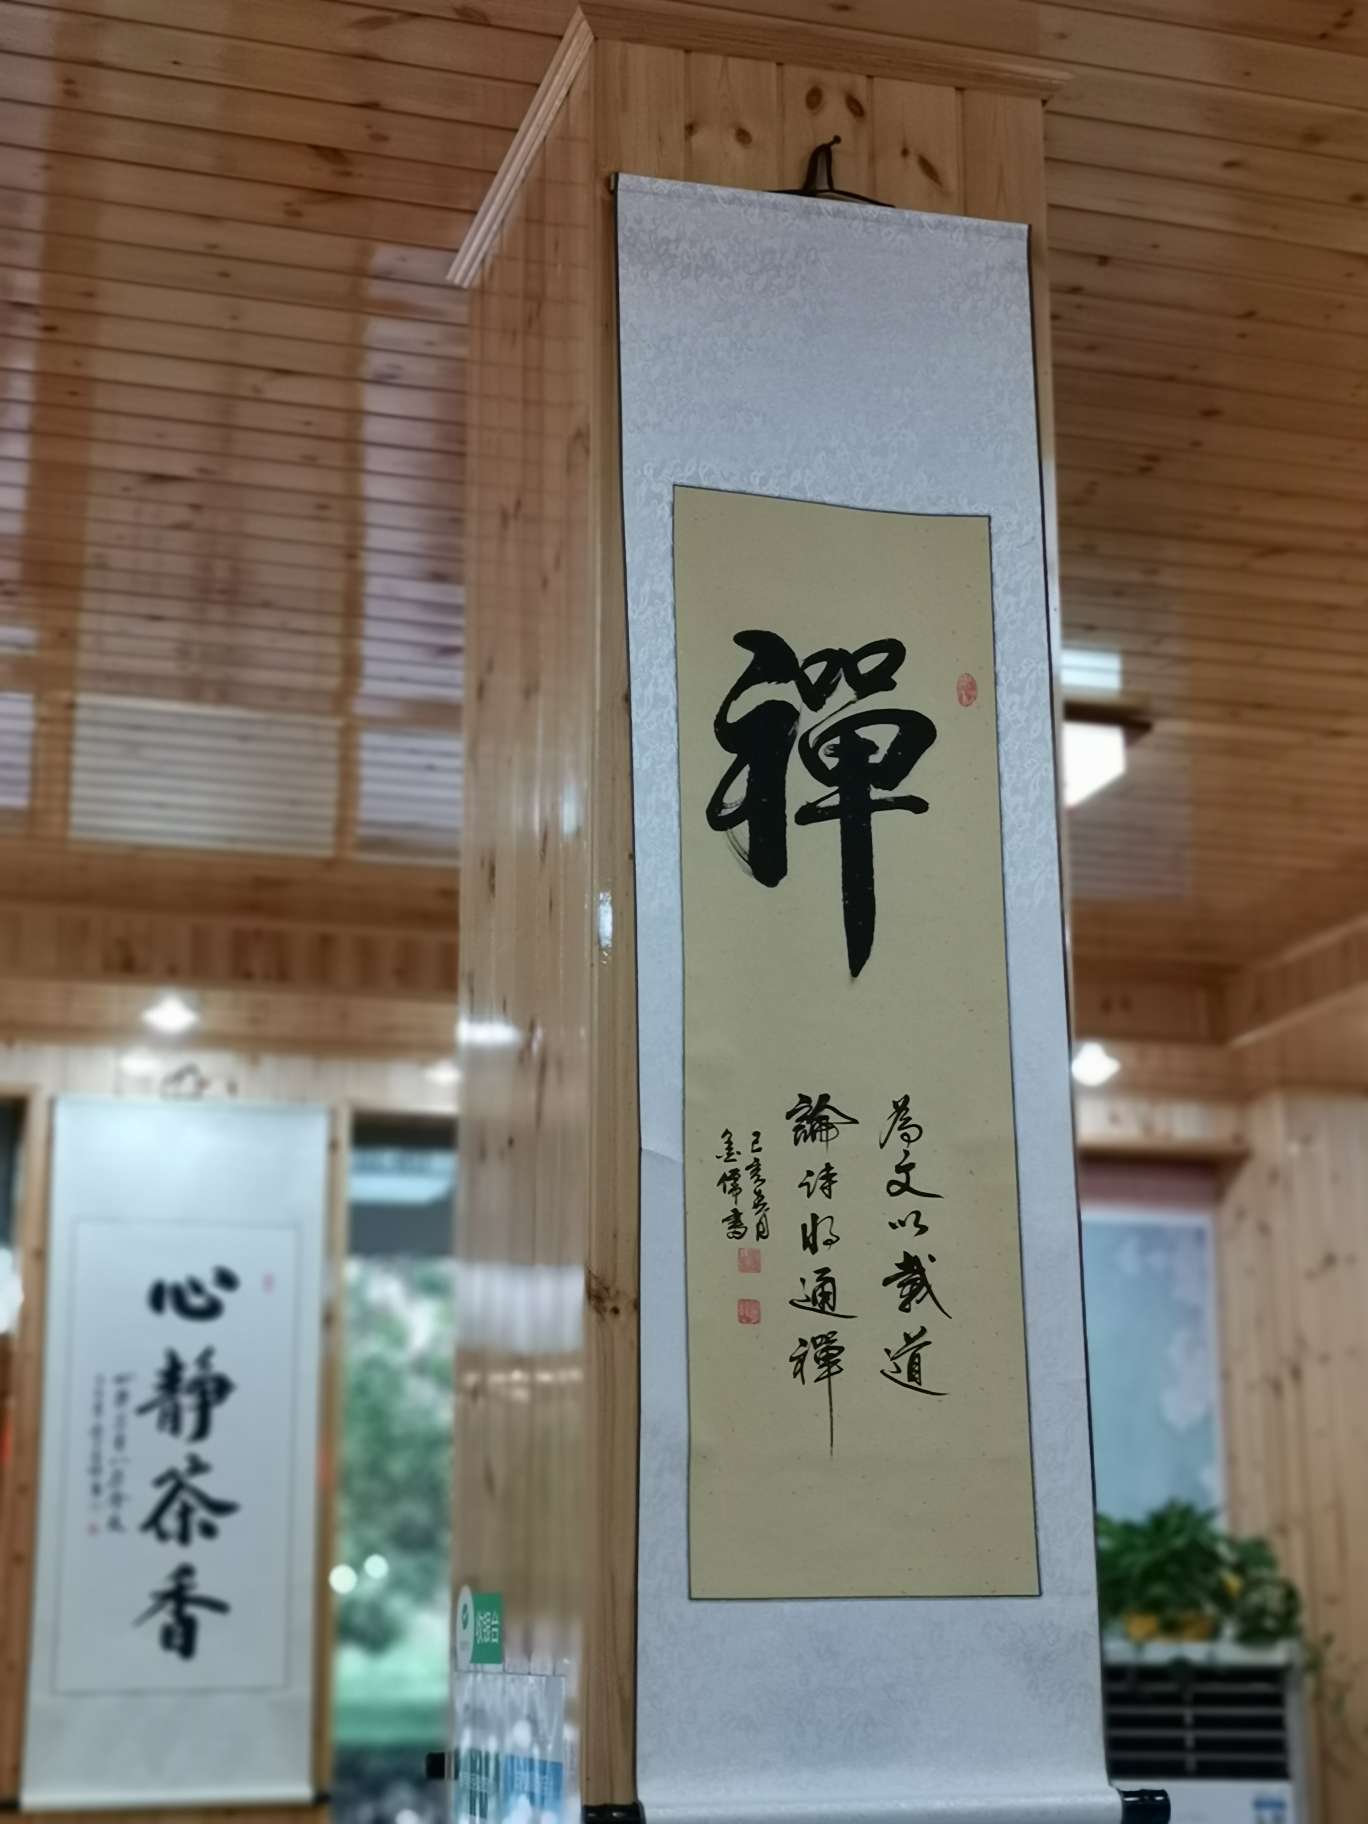 禪
為文以載道
論诗將通禪
己亥春月
金儒書
心静茶香
收银台